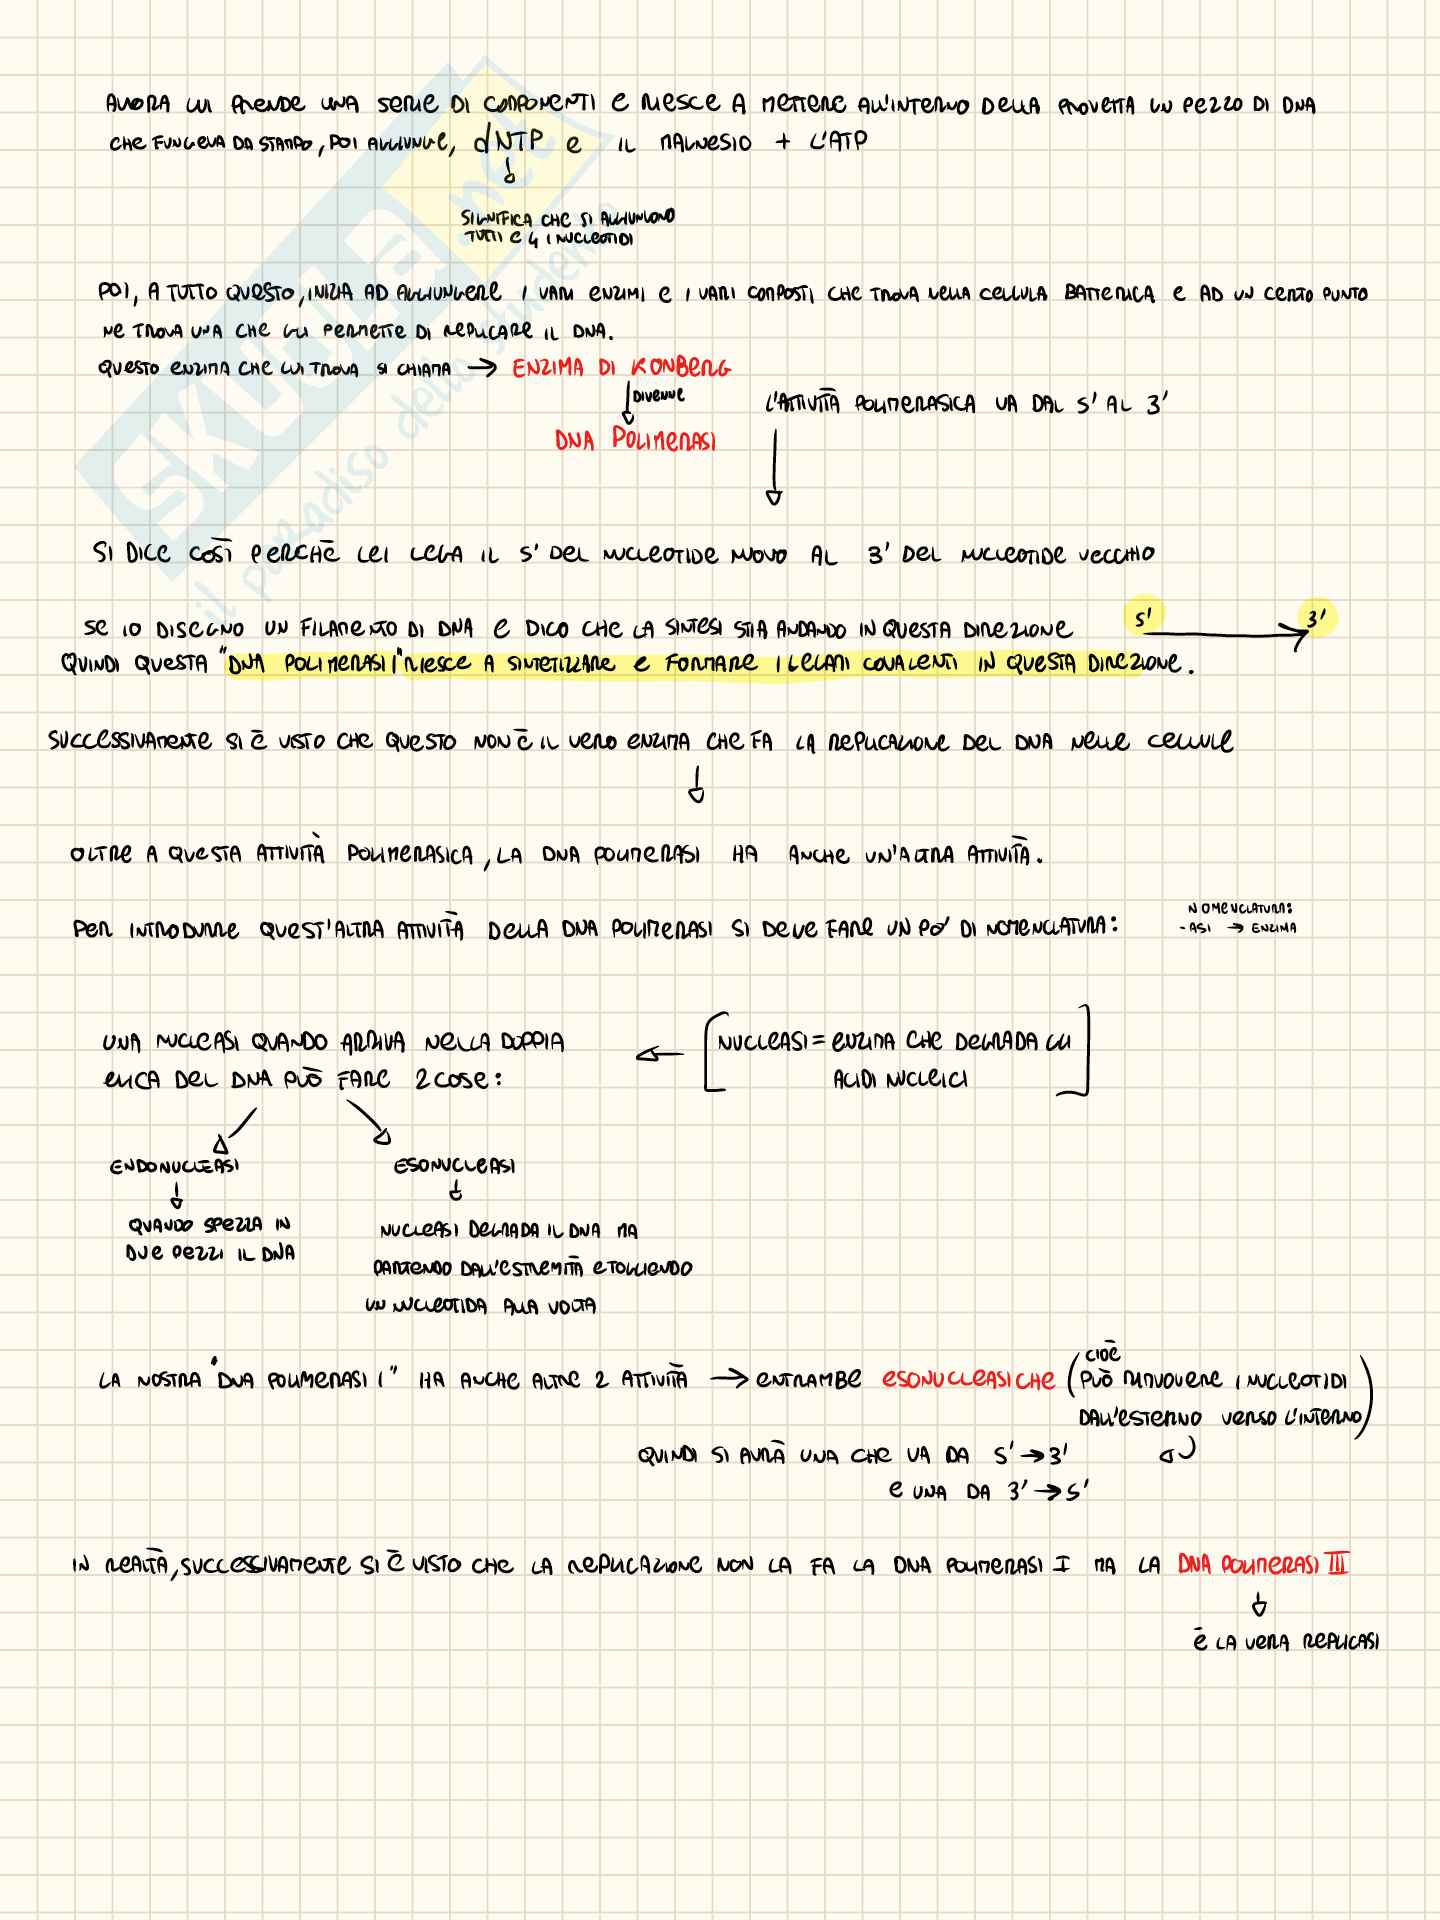 ALLORA LUI PRENDE UNA SERIE DI COMPONENTI E RIESCE A METTERE ALL'INTERNO DELLA PROVETTA UN PEZZO DI DNA
CHE FUNGEVA DA STAMPO, POI AGGIUNGE, dNTP E IL MAGNESIO + L'ATP
SIGNIFICA CHE SI AGGIUNGONO
TUTTI E 4 I NUCLEOTIDI
POI, A TUTTO QUESTO, INIZIA AD AGGIUNGERE I VARI ENZIMI E I VARI COMPOSTI CHE TROVA NELLA CELLULA BATTERICA E AD UN CERTO PUNTO
NE TROVA UNA CHE GLI PERMETTE DI REPLICARE IL DNA.
QUESTO ENZIMA CHE LUI TROVA SI CHIAMA → ENZIMA DI KONBERG
DIVENNE
L'ATTIVITÀ POLIMERASICA VA DAL 5' AL 3'
DNA POLIMERASI
SI DICE COSÌ PERCHÈ LEI LEGA IL 5' DEL NUCLEOTIDE NUOVO AL 3' DEL NUCLEOTIDE VECCHIO
SE IO DISEGNO UN FILAMENTO DI DNA E DICO CHE LA SINTESI STIA ANDANDO IN QUESTA DIREZIONE 5' → 3'
QUINDI QUESTA "DNA POLIMERASI I" RIESCE A SINTETIZZARE E FORMARE I LEGAMI COVALENTI IN QUESTA DIREZIONE.
SUCCESSIVAMENTE SI È VISTO CHE QUESTO NON È IL VERO ENZIMA CHE FA LA REPLICAZIONE DEL DNA NELLE CELLULE
OLTRE A QUESTA ATTIVITÀ POLIMERASICA, LA DNA POLIMERASI HA ANCHE UN'ALTRA ATTIVITÀ.
PER INTRODURRE QUEST'ALTRA ATTIVITÀ DELLA DNA POLIMERASI SI DEVE FARE UN PO' DI NOMENCLATURA:
NOMENCLATURA:
-ASI → ENZIMA
UNA NUCLEASI QUANDO ARRIVA NELLA DOPPIA
ELICA DEL DNA PUÒ FARE 2 COSE:
← [NUCLEASI = ENZIMA CHE DEGRADA GLI
ACIDI NUCLEICI]
ENDONUCLEASI
QUANDO SPEZZA IN
DUE PEZZI IL DNA
ESONUCLEASI
NUCLEASI DEGRADA IL DNA MA
PARTENDO DALL'ESTREMITÀ E TOGLIENDO
UN NUCLEOTIDA ALLA VOLTA
LA NOSTRA "DNA POLIMERASI I" HA ANCHE ALTRE 2 ATTIVITÀ → ENTRAMBE ESONUCLEASICHE (CIOÈ
PUÒ RIMUOVERE I NUCLEOTIDI
DALL'ESTERNO VERSO L'INTERNO)
QUINDI SI AVRÀ UNA CHE VA DA 5' → 3'
E UNA DA 3' → 5'
IN REALTÀ, SUCCESSIVAMENTE SI È VISTO CHE LA REPLICAZIONE NON LA FA LA DNA POLIMERASI I MA LA DNA POLIMERASI III
È LA VERA REPLICASI
SKUOLA.net
il paradiso dello studente